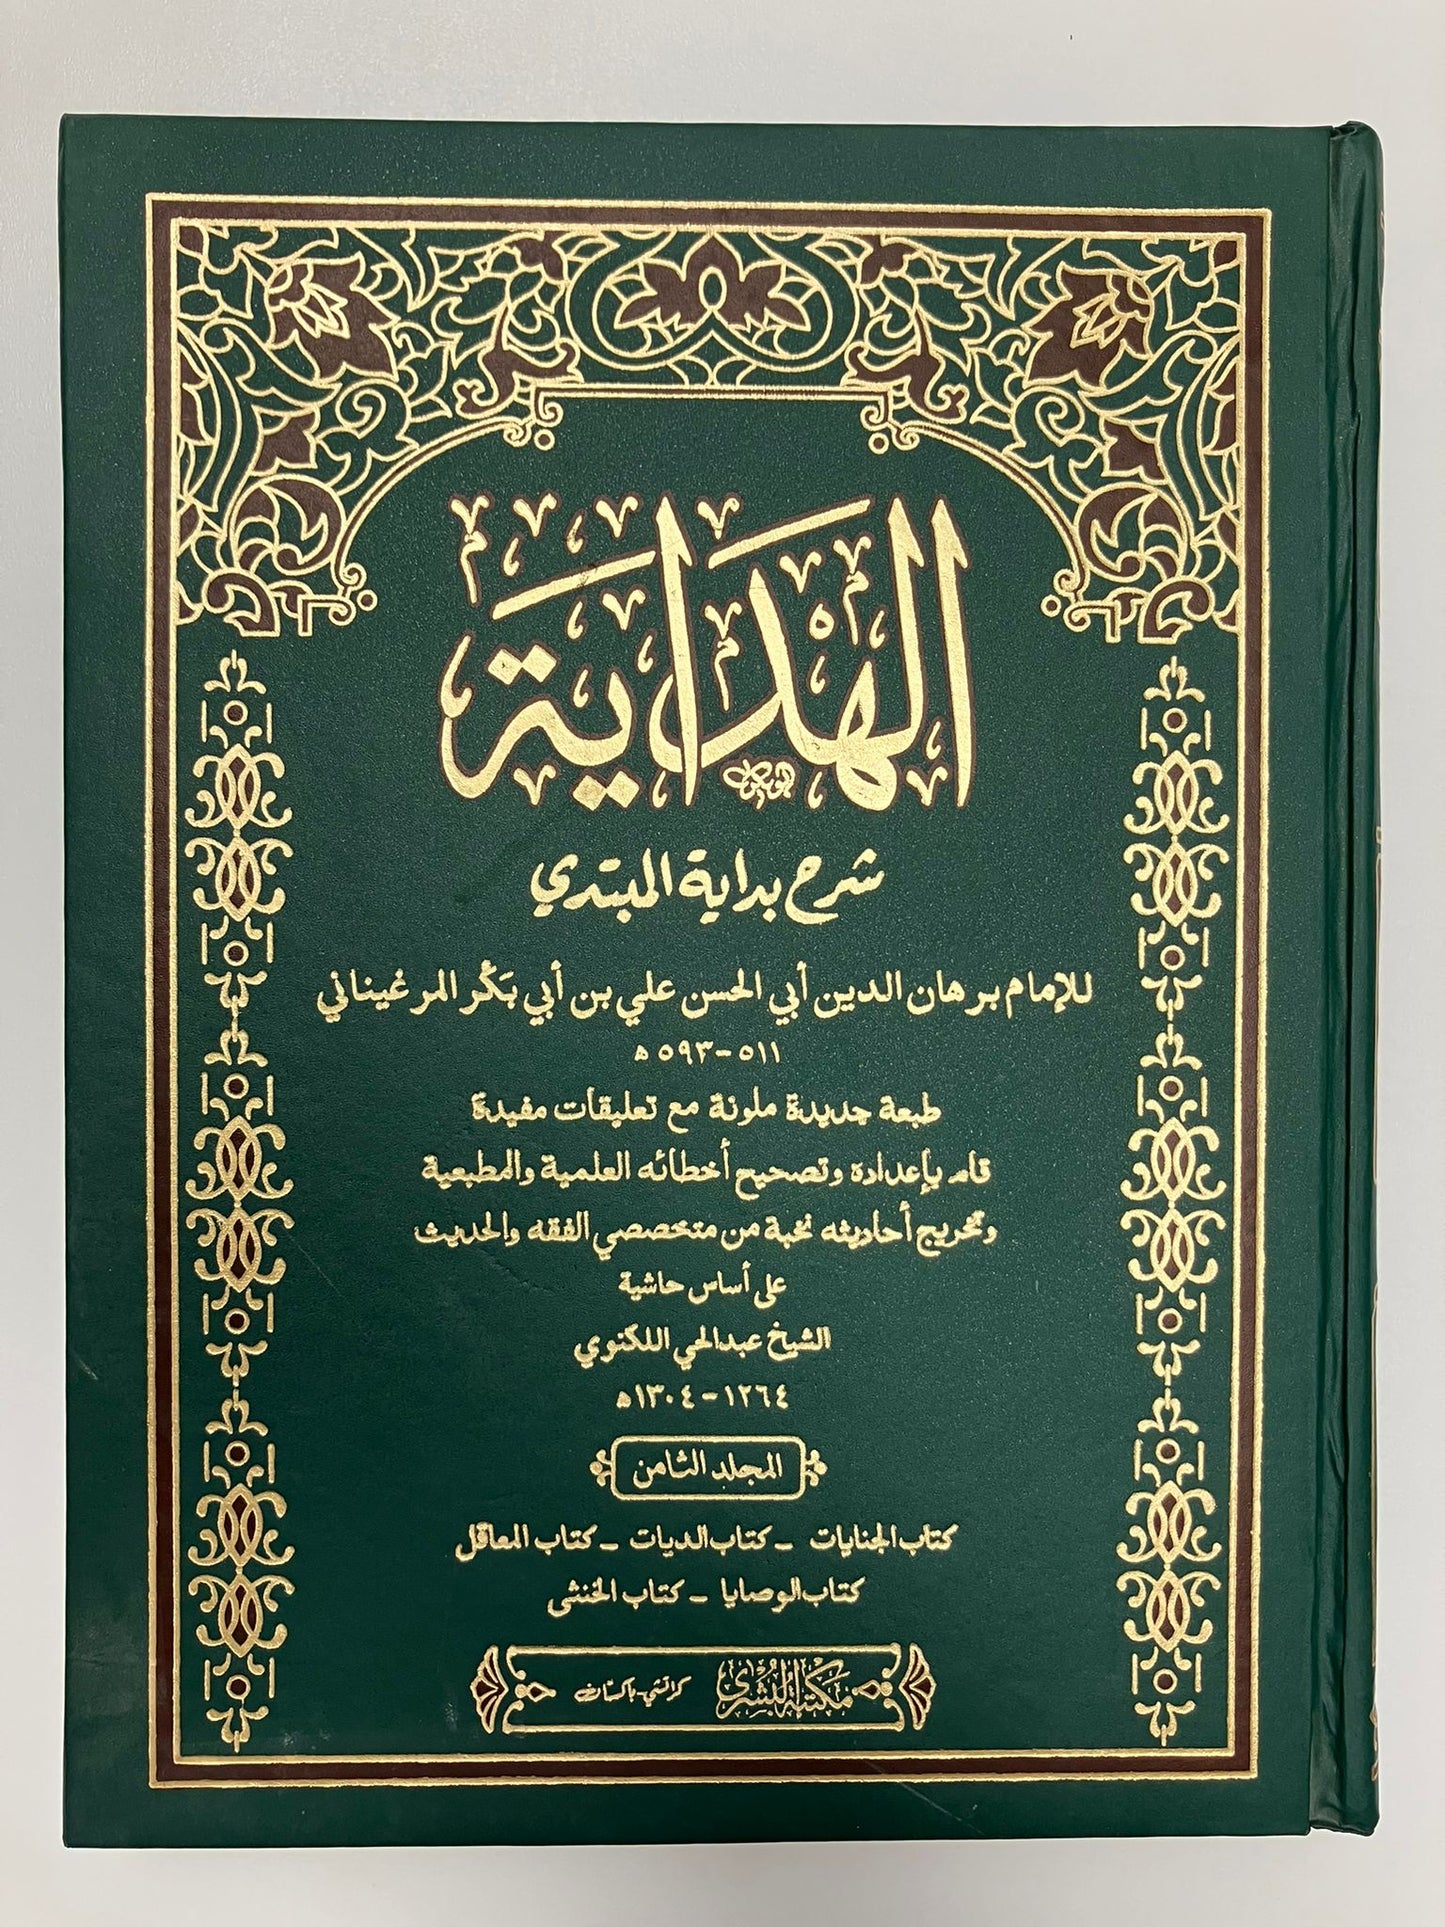 الهداية
شرح بداية المبتدي
للإمام برهان الدين أبي الحسن علي بن أبي بكر المرغيناني
٥١١-٥٩٣ ه
طبعة جديدة ملونة مع تعليقات مفيدة
قام بإعداده وتصحيح أخطائه العلمية والمطبعية
وتخريج أحاديثه نخبة من متخصصي الفقه والحديث
على أساس حاشية
الشيخ عبدالحي اللكنوي
١٢٦٤-١٣٠٤ه
المجلد الثامن
كتاب الجنايات - كتاب الديات - كتاب المعاقل
كتاب الوصايا - كتاب الخنثى
مكتبة البشرى كراتشي-باكستان